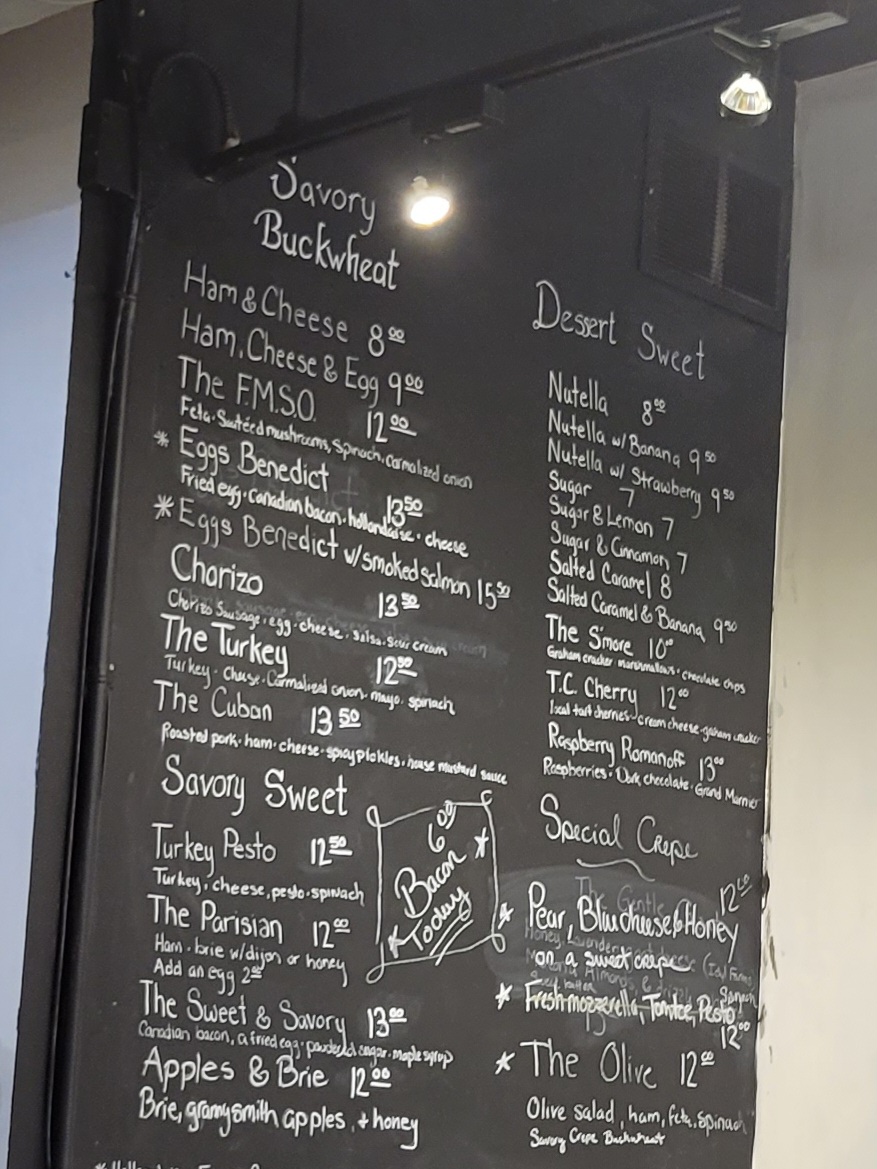 Savory
Buckwheat
Ham & Cheese 8.00
Ham, Cheese & Egg 9.00
The F.M.S.O. 12.00
Feta · Sautéed mushrooms, Spinach, carmalized onion
* Eggs Benedict 13.50
Fried egg · canadian bacon · hollandaise · cheese
* Eggs Benedict w/ smoked salmon 15.50
Chorizo 13.50
Chorizo Sausage · egg · cheese · salsa · sour cream
The Turkey 12.50
Turkey · Cheese · Carmalized onion · mayo · spinach
The Cuban 13.50
Roasted pork · ham · cheese · spicy pickles · house mustard sauce
Savory Sweet
Turkey Pesto 12.50
Turkey, cheese, pesto · spinach
The Parisian 12.00
Ham · brie w/ dijon or honey
Add an egg 2.00
The Sweet & Savory 13.00
Canadian bacon, a fried egg · powdered sugar · maple syrup
Apples & Brie 12.00
Brie, granny smith apples, + honey
6.00
Bacon *
* Today
Dessert Sweet
Nutella 8.00
Nutella w/ Banana 9.50
Nutella w/ Strawberry 9.50
Sugar 7
Sugar & Lemon 7
Sugar & Cinnamon 7
Salted Caramel 8
Salted Caramel & Banana 9.50
The S'more 10.00
Graham cracker marshmallows · chocolate chips
T.C. Cherry 12.00
local tart cherries · cream cheese · graham cracker
Raspberry Romanoff 13.00
Raspberries · Dark chocolate · Grand Marnier
Special Crepe
12.00
* Pear, Bleu cheese & Honey
on a sweet crepe
* Fresh mozzerella, Tomatoe, Pesto
12.00
* The Olive 12.00
Olive salad, ham, feta, spinach
Savory Crepe Buckwheat